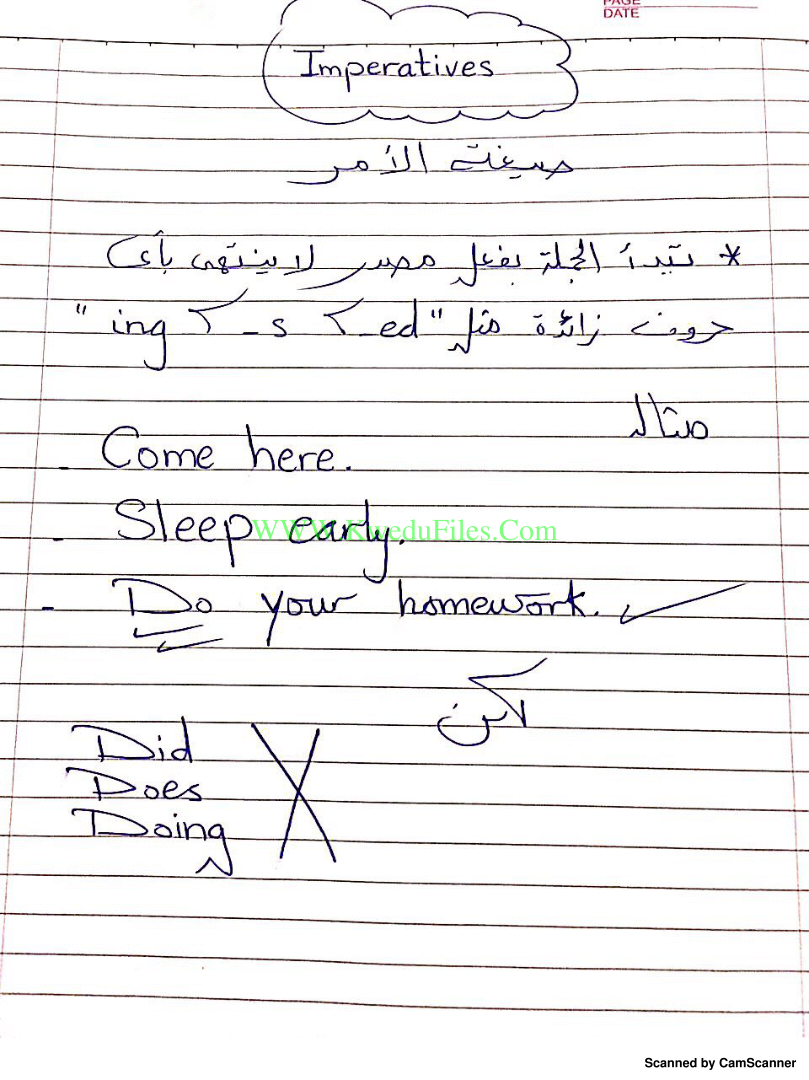 PAGE
DATE
Imperatives
صيغة الأمر
* تبدأ الجملة بفعل مصدر لا ينتهى بأى
حروف زائدة مثل "ing ، -s ، -ed"
مثال
- Come here.
- Sleep early.
WWW.KweduFiles.Com
- Do your homework. ✓
لكن
Did
Does
Doing
X
Scanned by CamScanner